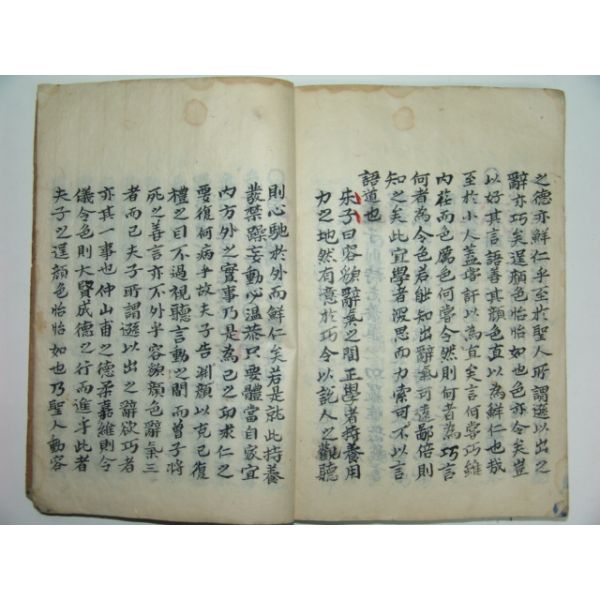 之德亦鮮仁乎至於聖人所謂遜以出之
辭亦巧矣遜顔色怡怡如也色亦令矣豈
以好其言語善其顔色直以為鮮仁也哉
至於小人蓋嘗訐以為直矣言何嘗巧維
內荏而色厲色何嘗令然則何者為巧言
何者為令色若能知出辭氣可遠鄙倍則
知之矣此宜學者深思而力索可不以言
語道也
朱子曰容貌辭氣之間正學者持養用
力之地然有意於巧令以說人之觀聽
則心馳於外而鮮仁矣若是就此持養
發禁躁妄動心溫恭只要體當自家宜
內方外之實事乃是為己之功求仁之
要復何病乎故夫子告顔以克己復
禮之目不過視聽言動之間而曾子將
死之善言亦不外乎容貌顔色辭氣三
者而已夫子所謂遜以出之辭欲巧者
亦其一事也仲山甫之德柔嘉維則令
儀令色則大賢成德之行而進乎此者
夫子之遜顔色怡怡如也乃聖人動容